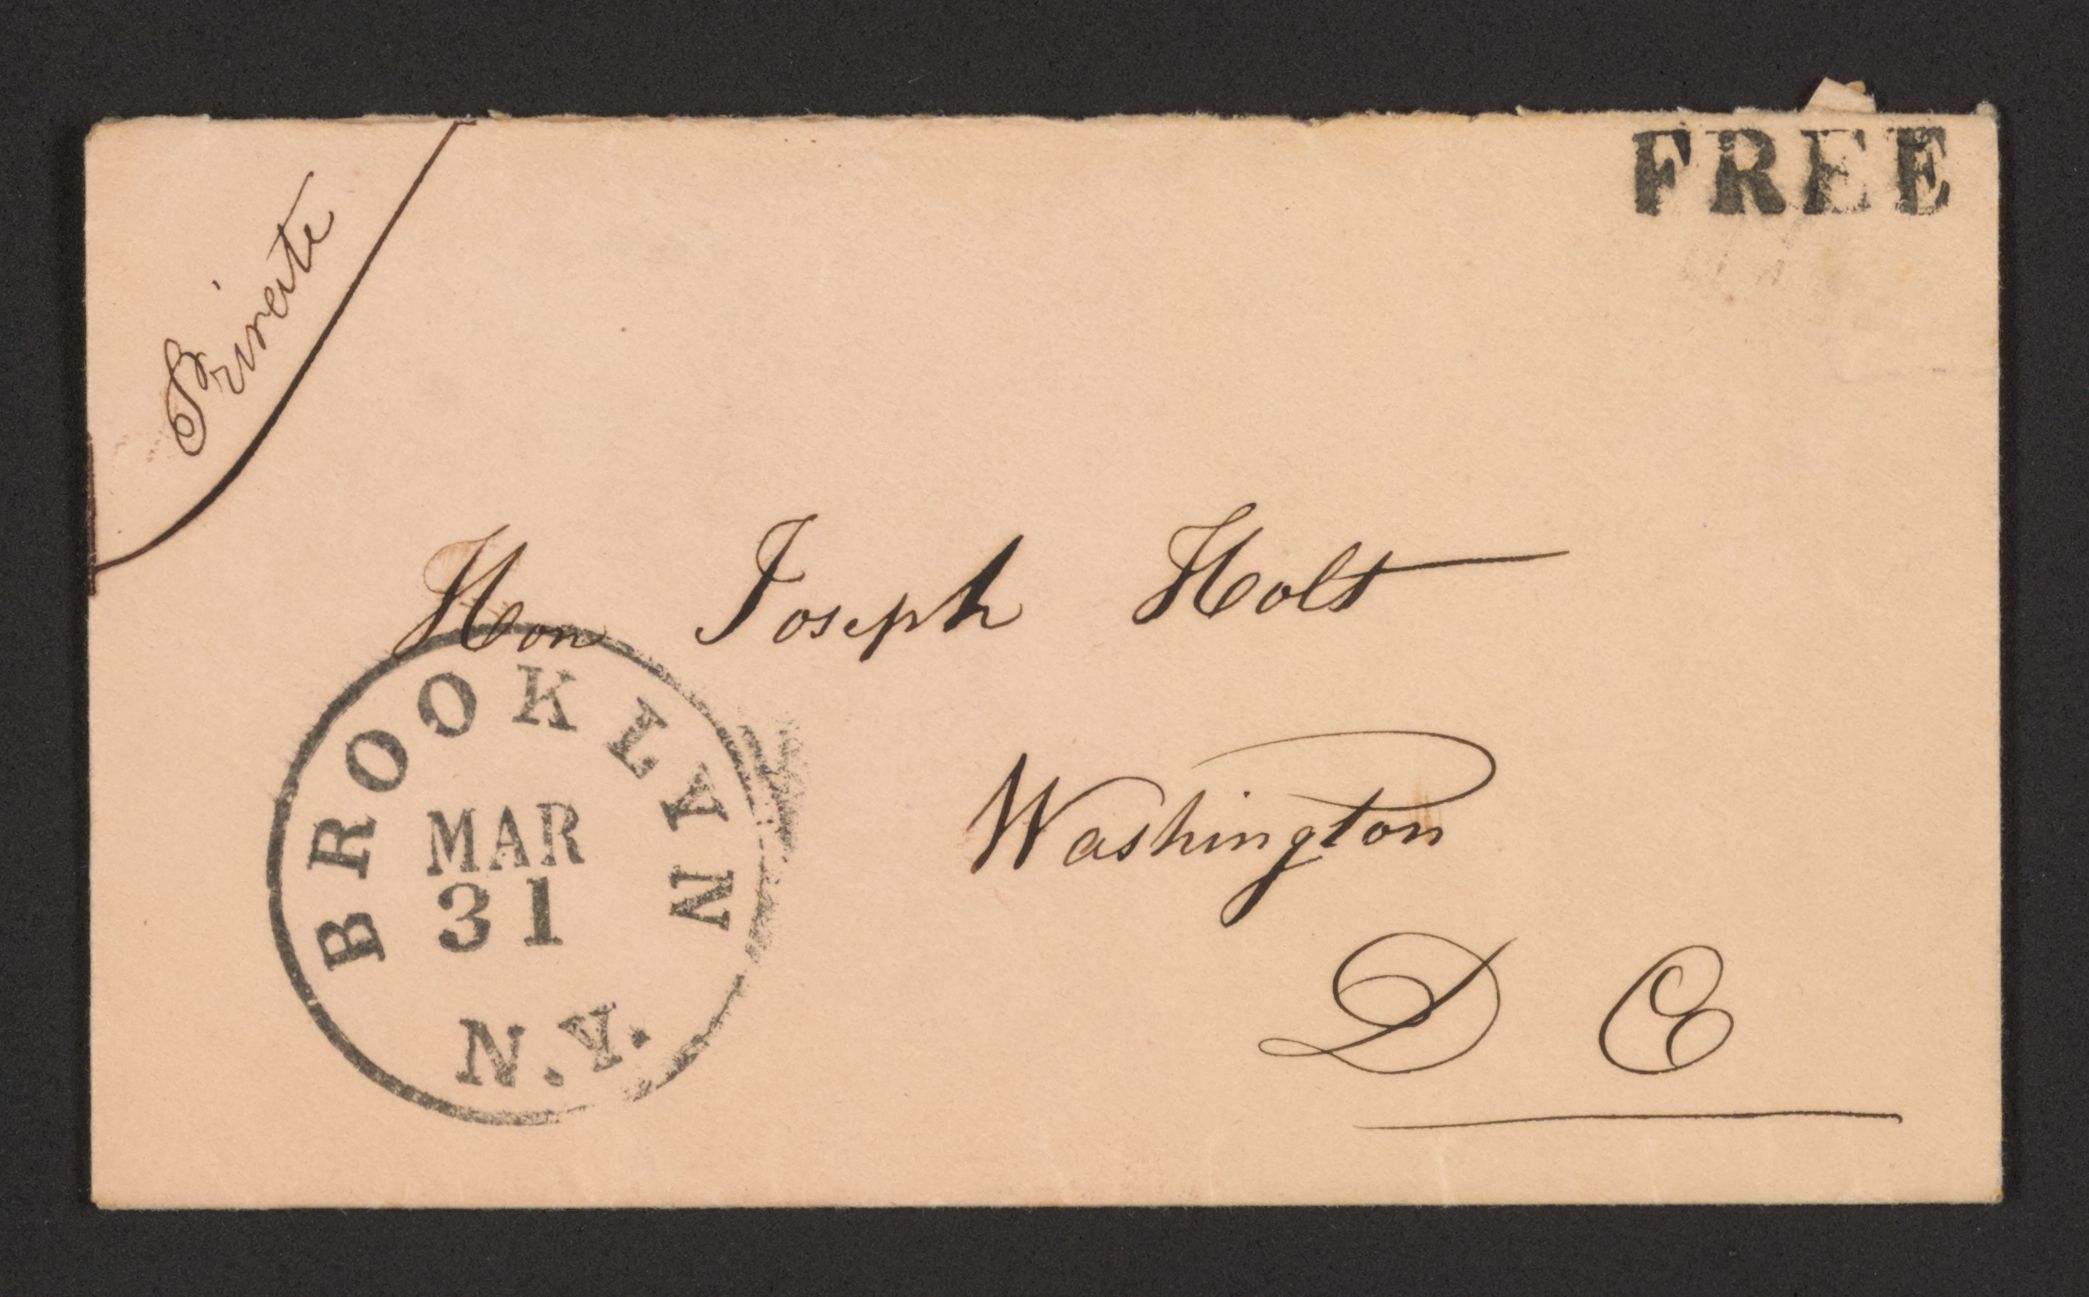 Private
FREE
Hon Joseph Holt
Washington
D C
BROOKLYN
MAR
31
N.Y.